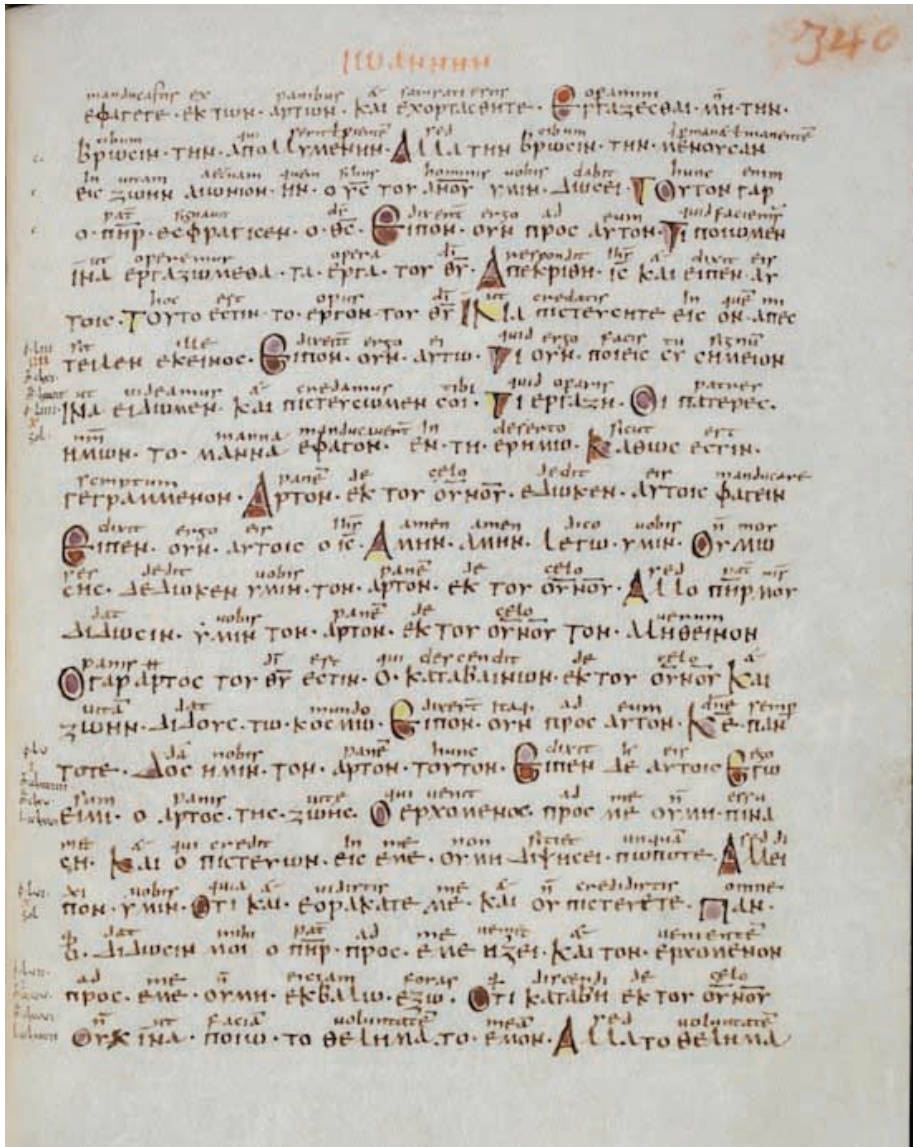 ΙΩΑΝΝΗΝ
340
manducastis ex panibus & saturati estis operamini
ΕΦΑΓΕΤΕ · ΕΚ ΤΩΝ · ΑΡΤΩΝ · ΚΑΙ ΕΧΟΡΤΑΣΘΗΤΕ · ΕΡΓΑΖΕΣΘΑΙ · ΜΗ · ΤΗΝ ·
cibum qui sed cibum
ΒΡΩΣΙΝ · ΤΗΝ · ΑΠΟΛΛΥΜΕΝΗΝ · ΑΛΛΑ ΤΗΝ ΒΡΩΣΙΝ · ΤΗΝ · ΜΕΝΟΥΣΑΝ
In uitam aeternam quem filius hominis uobis dabit hunc enim
ΕΙΣ ΖΩΗΝ ΑΙΩΝΙΟΝ · ΗΝ · Ο ΥΣ ΤΟΥ ΑΝΟΥ ΥΜΙΝ · ΔΩΣΕΙ · ΤΟΥΤΟΝ ΓΑΡ
pat signauit ds dixert ergo ad eum quid faciemus
Ο · ΠΗΡ · ΕΣΦΡΑΓΙΣΕΝ · Ο ΘΣ · ΕΙΠΟΝ · ΟΥΝ ΠΡΟΣ ΑΥΤΟΝ · ΤΙ ΠΟΙΩΜΕΝ
ut operemur opera di respondit ihs & dixit eis
ΙΝΑ ΕΡΓΑΖΩΜΕΘΑ · ΤΑ ΕΡΓΑ · ΤΟΥ ΘΥ · ΑΠΕΚΡΙΘΗ · ΙΣ ΚΑΙ ΕΙΠΕΝ · ΑΥ
hoc est opus di ut credatis In que mi
ΤΟΙΣ · ΤΟΥΤΟ ΕΣΤΙΝ · ΤΟ · ΕΡΓΟΝ · ΤΟΥ ΘΥ ΙΝΑ ΠΙΣΤΕΥΣΗΤΕ ΕΙΣ ΟΝ · ΑΠΕΣ
sit ille dixert ergo ei quid ergo facis tu signu
ΤΕΙΛΕΝ ΕΚΕΙΝΟΣ · ΕΙΠΟΝ · ΟΥΝ · ΑΥΤΩ · ΤΙ ΟΥΝ · ΠΟΙΕΙΣ ΣΥ ΣΗΜΕΙΟΝ
ut uideamus & credamus tibi quid operis patres
ΙΝΑ ΕΙΔΩΜΕΝ · ΚΑΙ ΠΙΣΤΕΥΣΩΜΕΝ ΣΟΙ · ΤΙ ΕΡΓΑΖΗ · ΟΙ ΠΑΤΕΡΕΣ ·
nri manna manducauert In deserto sicut est
ΗΜΩΝ · ΤΟ · ΜΑΝΝΑ ΕΦΑΓΟΝ · ΕΝ · ΤΗ · ΕΡΗΜΩ · ΚΑΘΩΣ ΕΣΤΙΝ ·
scriptum pane de celo dedit eis manducare
ΓΕΓΡΑΜΜΕΝΟΝ · ΑΡΤΟΝ · ΕΚ ΤΟΥ ΟΥΝΟΥ · ΕΔΩΚΕΝ · ΑΥΤΟΙΣ ΦΑΓΕΙΝ
dixit ergo eis ihs amen amen dico uobis n moy
ΕΙΠΕΝ · ΟΥΝ · ΑΥΤΟΙΣ Ο ΙΣ · ΑΜΗΝ · ΑΜΗΝ · ΛΕΓΩ · ΥΜΙΝ · ΟΥ ΜΩ
ses dedit uobis pane de celo sed pat
ΣΗΣ · ΔΕΔΩΚΕΝ ΥΜΙΝ · ΤΟΝ · ΑΡΤΟΝ · ΕΚ ΤΟΥ ΟΥΝΟΥ · ΑΛΛ Ο ΠΗΡ ΜΟΥ
dat uobis pane de celo uerum
ΔΙΔΩΣΙΝ · ΥΜΙΝ ΤΟΝ · ΑΡΤΟΝ · ΕΚ ΤΟΥ ΟΥΝΟΥ ΤΟΝ · ΑΛΗΘΕΙΝΟΝ
panis di est qui descendit de celo &
Ο ΓΑΡ ΑΡΤΟΣ ΤΟΥ ΘΥ ΕΣΤΙΝ · Ο · ΚΑΤΑΒΑΙΝΩΝ · ΕΚ ΤΟΥ ΟΥΝΟΥ ΚΑΙ
uita dat mundo dixert itaq ad eum dne semp
ΖΩΗΝ · ΔΙΔΟΥΣ · ΤΩ · ΚΟΣΜΩ · ΕΙΠΟΝ · ΟΥΝ ΠΡΟΣ ΑΥΤΟΝ · ΚΕ · ΠΑΝ
da nobis pane hunc dixit eis ego
ΤΟΤΕ · ΔΟΣ ΗΜΙΝ · ΤΟΝ · ΑΡΤΟΝ · ΤΟΥΤΟΝ · ΕΙΠΕΝ ΔΕ ΑΥΤΟΙΣ ΕΓΩ
sum panis uite qui uenit ad me n esu
ΕΙΜΙ · Ο ΑΡΤΟΣ · ΤΗΣ · ΖΩΗΣ · Ο ΕΡΧΟΜΕΝΟΣ · ΠΡΟΣ ΜΕ ΟΥ ΜΗ · ΠΙΝΑ
& qui credit In me non sitiet unqua sed di
ΣΗ · ΚΑΙ Ο ΠΙΣΤΕΥΩΝ · ΕΙΣ ΕΜΕ · ΟΥ ΜΗ ΔΙΨΗΣΕΙ · ΠΩΠΟΤΕ · ΑΛΛ ΕΙ
xi uobis quia & uidistis me & n credidistis omne
ΠΟΝ · ΥΜΙΝ · ΟΤΙ ΚΑΙ · ΕΟΡΑΚΑΤΕ ΜΕ · ΚΑΙ ΟΥ ΠΙΣΤΕΥΕΤΕ · ΠΑΝ ·
dat mihi pat ad me ueniet & ueniente
Ο · ΔΙΔΩΣΙΝ ΜΟΙ Ο ΠΗΡ · ΠΡΟΣ · ΕΜΕ ΗΞΕΙ · ΚΑΙ ΤΟΝ · ΕΡΧΟΜΕΝΟΝ
ad me n eiciam foras discendi de celo
ΠΡΟΣ · ΕΜΕ · ΟΥ ΜΗ · ΕΚΒΑΛΩ · ΕΞΩ · ΟΤΙ ΚΑΤΑΒΗ ΕΚ ΤΟΥ ΟΥΝΟΥ
n ut facia uoluntate mea sed uoluntate
ΟΥΧ ΙΝΑ · ΠΟΙΩ · ΤΟ ΘΕΛΗΜΑ · ΤΟ · ΕΜΟΝ · ΑΛΛΑ ΤΟ ΘΕΛΗΜΑ